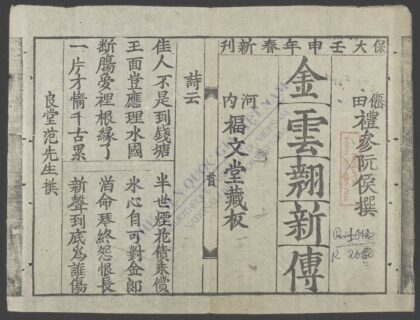 保大壬申年春新刊
僊田禮參阮侯撰
金雲翹新傳
河內福文堂藏板
首
詩云
佳人不是到錢塘 半世煙花債未償
玉面豈應埋水國 氷心自可對金郎
斷膓夢裡根緣了 薄命琴終怨恨長
一片才情千古累 新聲到底爲誰傷
良堂范先生撰
THƯ VIỆN QUỐC GIA VIỆT NAM